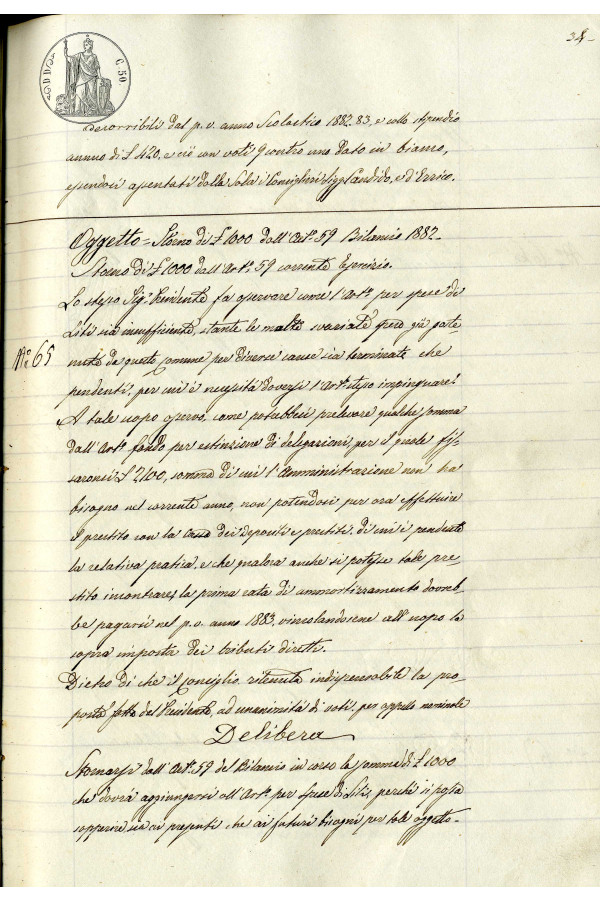 34
C. 50
decorribili dal p. v. anno Scolastico 1882.83, e collo stipendio
annuo di £ 420, e ciò con voti 9 contro uno dato in bianco,
essendosi assentati dalla Sala i Consiglieri Sigg. Candido, e d'Errico.
Oggetto = Storno di £ 1000 dall'Art.º 59 Bilancio 1882_
Storno di £ 1000 dall'Art.º 59 corrente Esercizio.
Lo stesso Sig.r Presidente fa osservare come l'Art.º per spese di
Liti sia insufficiente, stante le molte svariate spese già soste
N.º 65
nute da questo Comune per diverse cause sia terminate che
pendenti, per cui è necessità doversi l'Art.º stesso impinguare.
A tale uopo osservò, come potrebbesi prelevare qualche somma
dall'Art.º fondo per estinzione di delegazioni, per il quale fis-
saronsi £ 2100, somma di cui l'Amministrazione non ha
bisogno nel corrente anno, non potendosi per ora effettuire
il prestito con la Cassa dei Depositi e prestiti, di cui è pendente
la relativa pratica, e che qualora anche si potesse tale pre-
stito incontrare, la prima rata di ammortizzamento dovreb-
be pagarsi nel p. v. anno 1883, vincolandosene all'uopo la
sopra imposta dei tributi diretti.
Dietro di che il Consiglio ritenuta indispensabile la pro-
posta fatta dal Presidente, ad unanimità di voti, per appello nominale
Delibera
Stornarsi dall'Art.º 59 del Bilancio in corso la somma di £ 1000
che dovrà aggiungersi all'Art.º per spese di Liti, perchè si possa
sopperire sia ai presenti che ai futuri bisogni per tale oggetto_